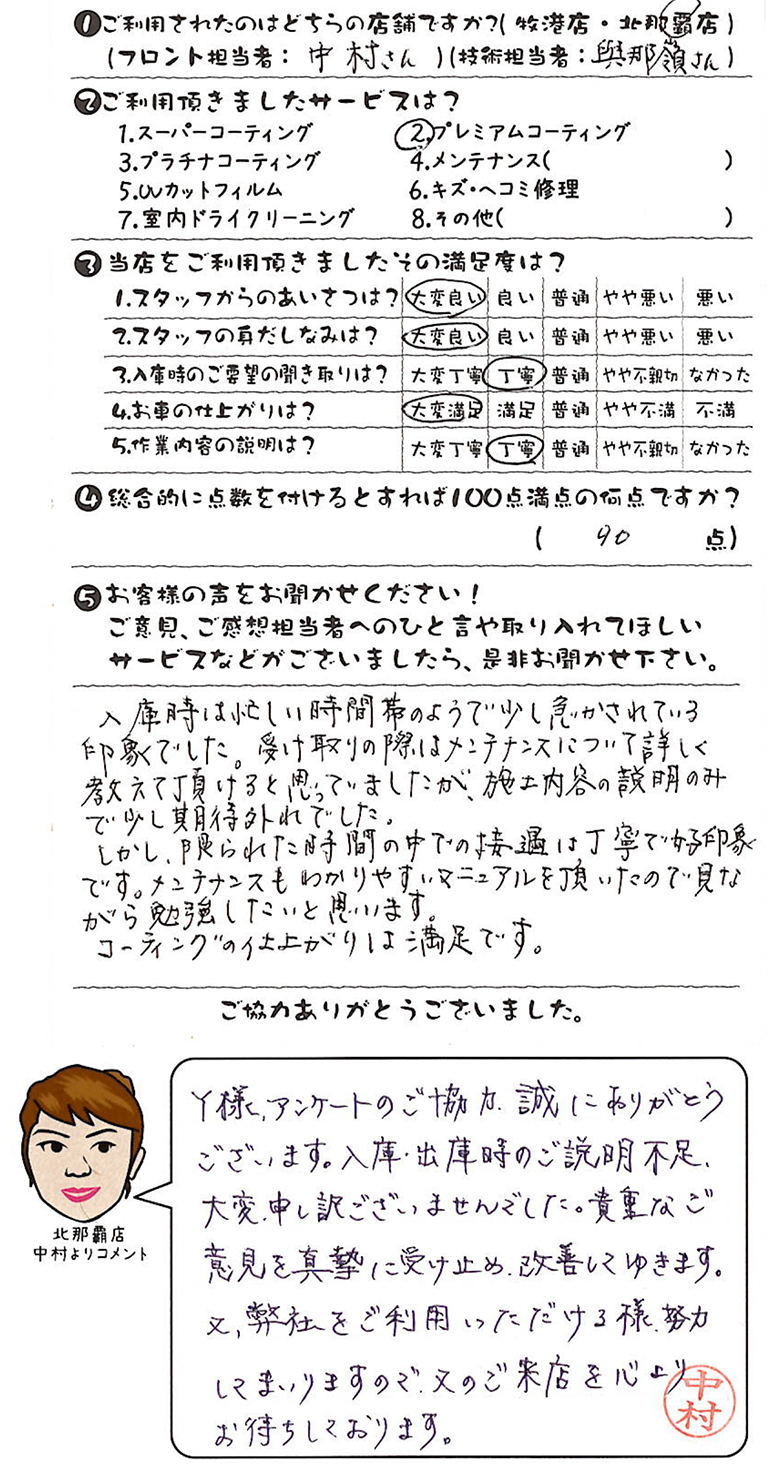 ❶ご利用されたのはどちらの店舗ですか?(牧港店・北那覇店)
(フロント担当者: 中村さん )(技術担当者:與那嶺さん)
❷ご利用頂きましたサービスは?
1.スーパーコーティング 2.プレミアムコーティング
3.プラチナコーティング 4.メンテナンス( )
5.UVカットフィルム 6.キズ・ヘコミ修理
7.室内ドライクリーニング 8.その他( )
❸当店をご利用頂きましたその満足度は?
1.スタッフからのあいさつは? 大変良い 良い 普通 やや悪い 悪い
2.スタッフの身だしなみは? 大変良い 良い 普通 やや悪い 悪い
3.入庫時のご要望の聞き取りは? 大変丁寧 丁寧 普通 やや不親切 なかった
4.お車の仕上がりは? 大変満足 満足 普通 やや不満 不満
5.作業内容の説明は? 大変丁寧 丁寧 普通 やや不親切 なかった
❹総合的に点数を付けるとすれば100点満点の何点ですか?
( 90 点)
❺お客様の声をお聞かせください!
ご意見、ご感想担当者へのひと言や取り入れてほしい
サービスなどがございましたら、是非お聞かせ下さい。
入庫時は忙しい時間帯のようで少し急かされている
印象でした。受け取りの際はメンテナンスについて詳しく
教えて頂けると思っていましたが、施工内容の説明のみ
で少し期待外れでした。
しかし、限られた時間の中での接遇は丁寧で好印象
です。メンテナンスもわかりやすいマニュアルを頂いたので見な
がら勉強したいと思います。
コーティングの仕上がりは満足です。
ご協力ありがとうございました。
Y様、アンケートのご協力、誠にありがとう
ございます。入庫・出庫時のご説明不足、
大変、申し訳ございませんでした。貴重なご
意見を真摯に受け止め、改善してゆきます。
又、弊社をご利用いただける様、努力
してまいりますので、又のご来店を心より
お待ちしております。
中村
北那覇店
中村よりコメント